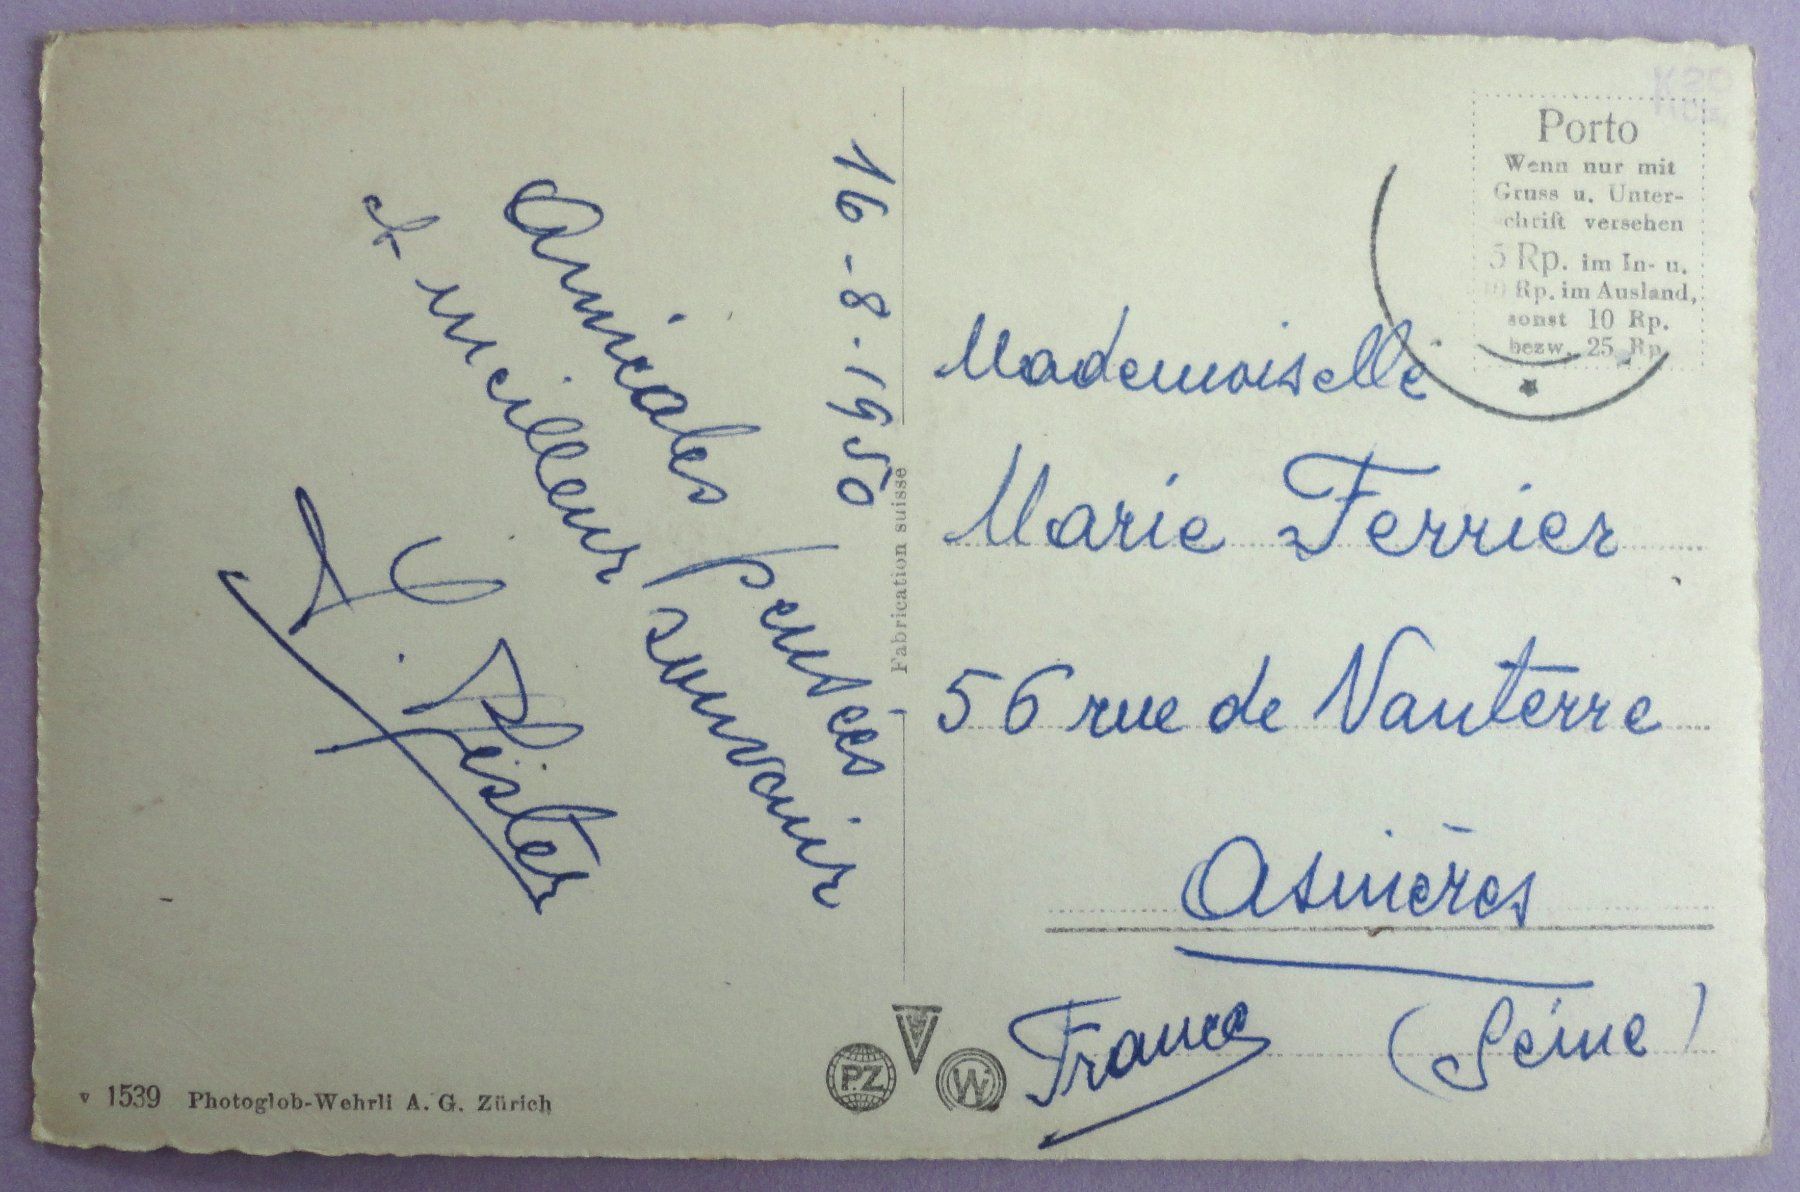 16-8-1950
Amicales pensées
et meilleur souvenir
Pfister
Fabrication suisse
Porto
Wenn nur mit
Gruss u. Unter-
schrift versehen
5 Rp. im In- u.
10 Rp. im Ausland,
sonst 10 Rp.
bezw. 25 Rp.
Mademoiselle
Marie Ferrier
56 rue de Nanterre
Asnières
France (Seine)
v 1539 Photoglob-Wehrli A. G. Zürich
PZ
W